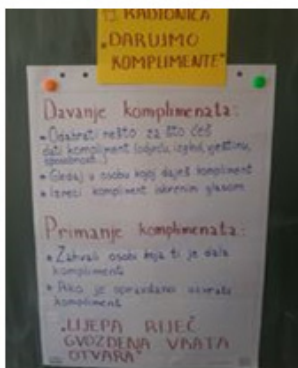 RADIONICA
„DARUJMO
KOMPLIMENTE"
Davanje komplimenata:
• Odabrati nešto za što ćeš
dati kompliment (odjeću, izgled, vještinu,
sposobnost...)
• Gledaj u osobu kojoj daješ kompliment
• Izreci kompliment iskrenim glasom
Primanje komplimenata:
• Zahvali osobi koja ti je dala
kompliment
• Ako je opravdano uzvrati
kompliment
„LIJEPA RIJEČ
GVOZDENA VRATA
OTVARA"